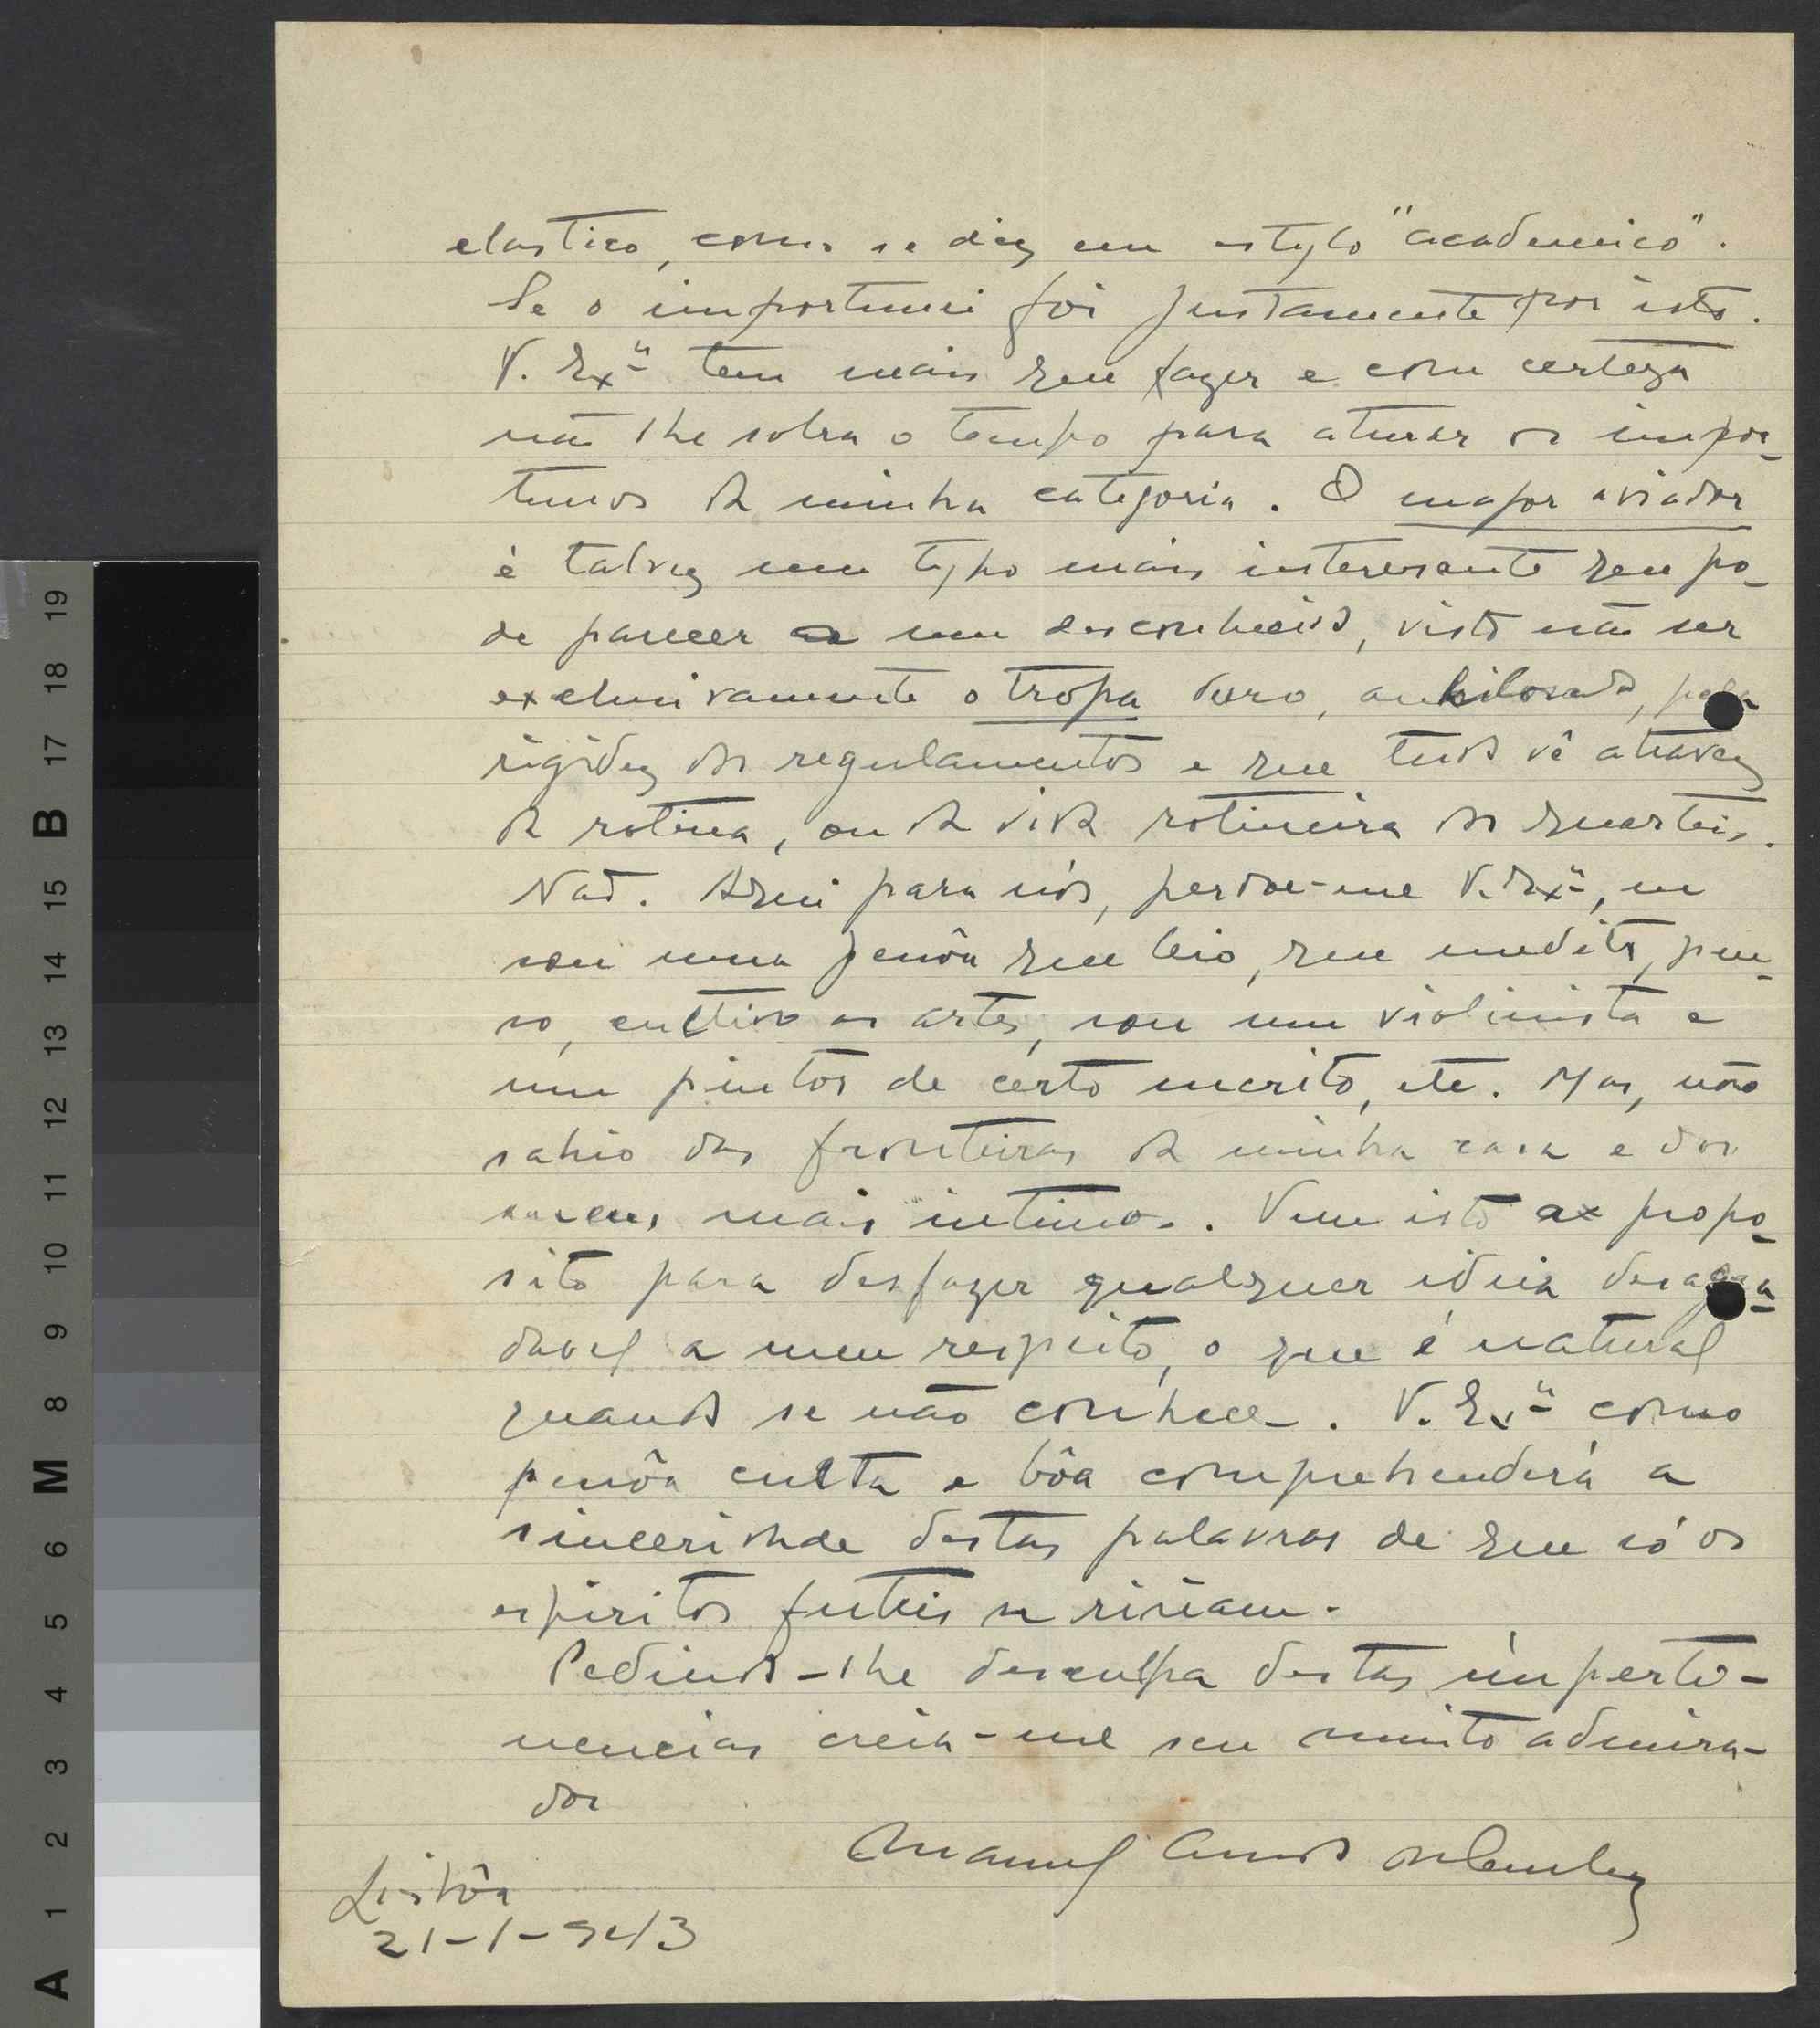 elastico, como se diz em estylo "academico".
Se o importunei foi justamente por isto.
V. Exª tem mais que fazer e com certeza
não lhe sobra o tempo para aturar os impor-
tunos da minha categoria. O major aviador
é talvez um typo mais interessante que po-
de parecer a um desconhecido, visto não ser
exclusivamente o tropa duro, ankilosado, pela
rigidez dos regulamentos e que tudo vê atravez
da rotina, ou da vida rotineira dos quarteis.
Não. Aqui para nós, perdoe-me V. Exª, eu
sou uma pessôa que leio, que medito, pen-
so, cultivo as artes, sou um violinista e
um pintor de certo merito, etc. Mas, não
sahio das fronteiras da minha casa e dos
meus mais intimos. Vem isto a propo-
sito para desfazer qualquer ideia desagra-
davel a meu respeito, o que é natural
quando se não conhece. V. Exª como
pessôa culta e bôa comprehenderá a
sinceridade destas palavras de que só os
espiritos futeis se ririam.
Pedindo-lhe desculpa destas imperti-
nencias creia-me seu muito admira-
dor
Manuel
Lisbôa
21-1-943
A 1 2 3 4 5 6 M 8 9 10 11 12 13 14 15 B 17 18 19